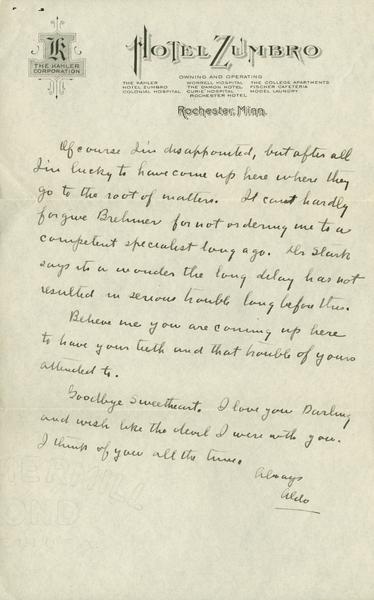 K
THE KAHLER
CORPORATION
HOTEL ZUMBRO
OWNING AND OPERATING
THE KAHLER WORRELL HOSPITAL THE COLLEGE APARTMENTS
HOTEL ZUMBRO THE DAMON HOTEL FISCHER CAFETERIA
COLONIAL HOSPITAL CURIE HOSPITAL MODEL LAUNDRY
ROCHESTER HOTEL
Rochester, Minn.
Of course I'm disappointed, but after all
I'm lucky to have come up here where they
go to the root of matters. I can't hardly
forgive Brehmer for not ordering me to a
competent specialist long ago. Dr Stark
says its a wonder the long delay has not
resulted in serious trouble long before this.
Believe me you are coming up here
to have your teeth and that trouble of yours
attended to.
Goodbye Sweetheart. I love you Darling
and wish like the devil I were with you.
I think of you all the time.
Always
Aldo